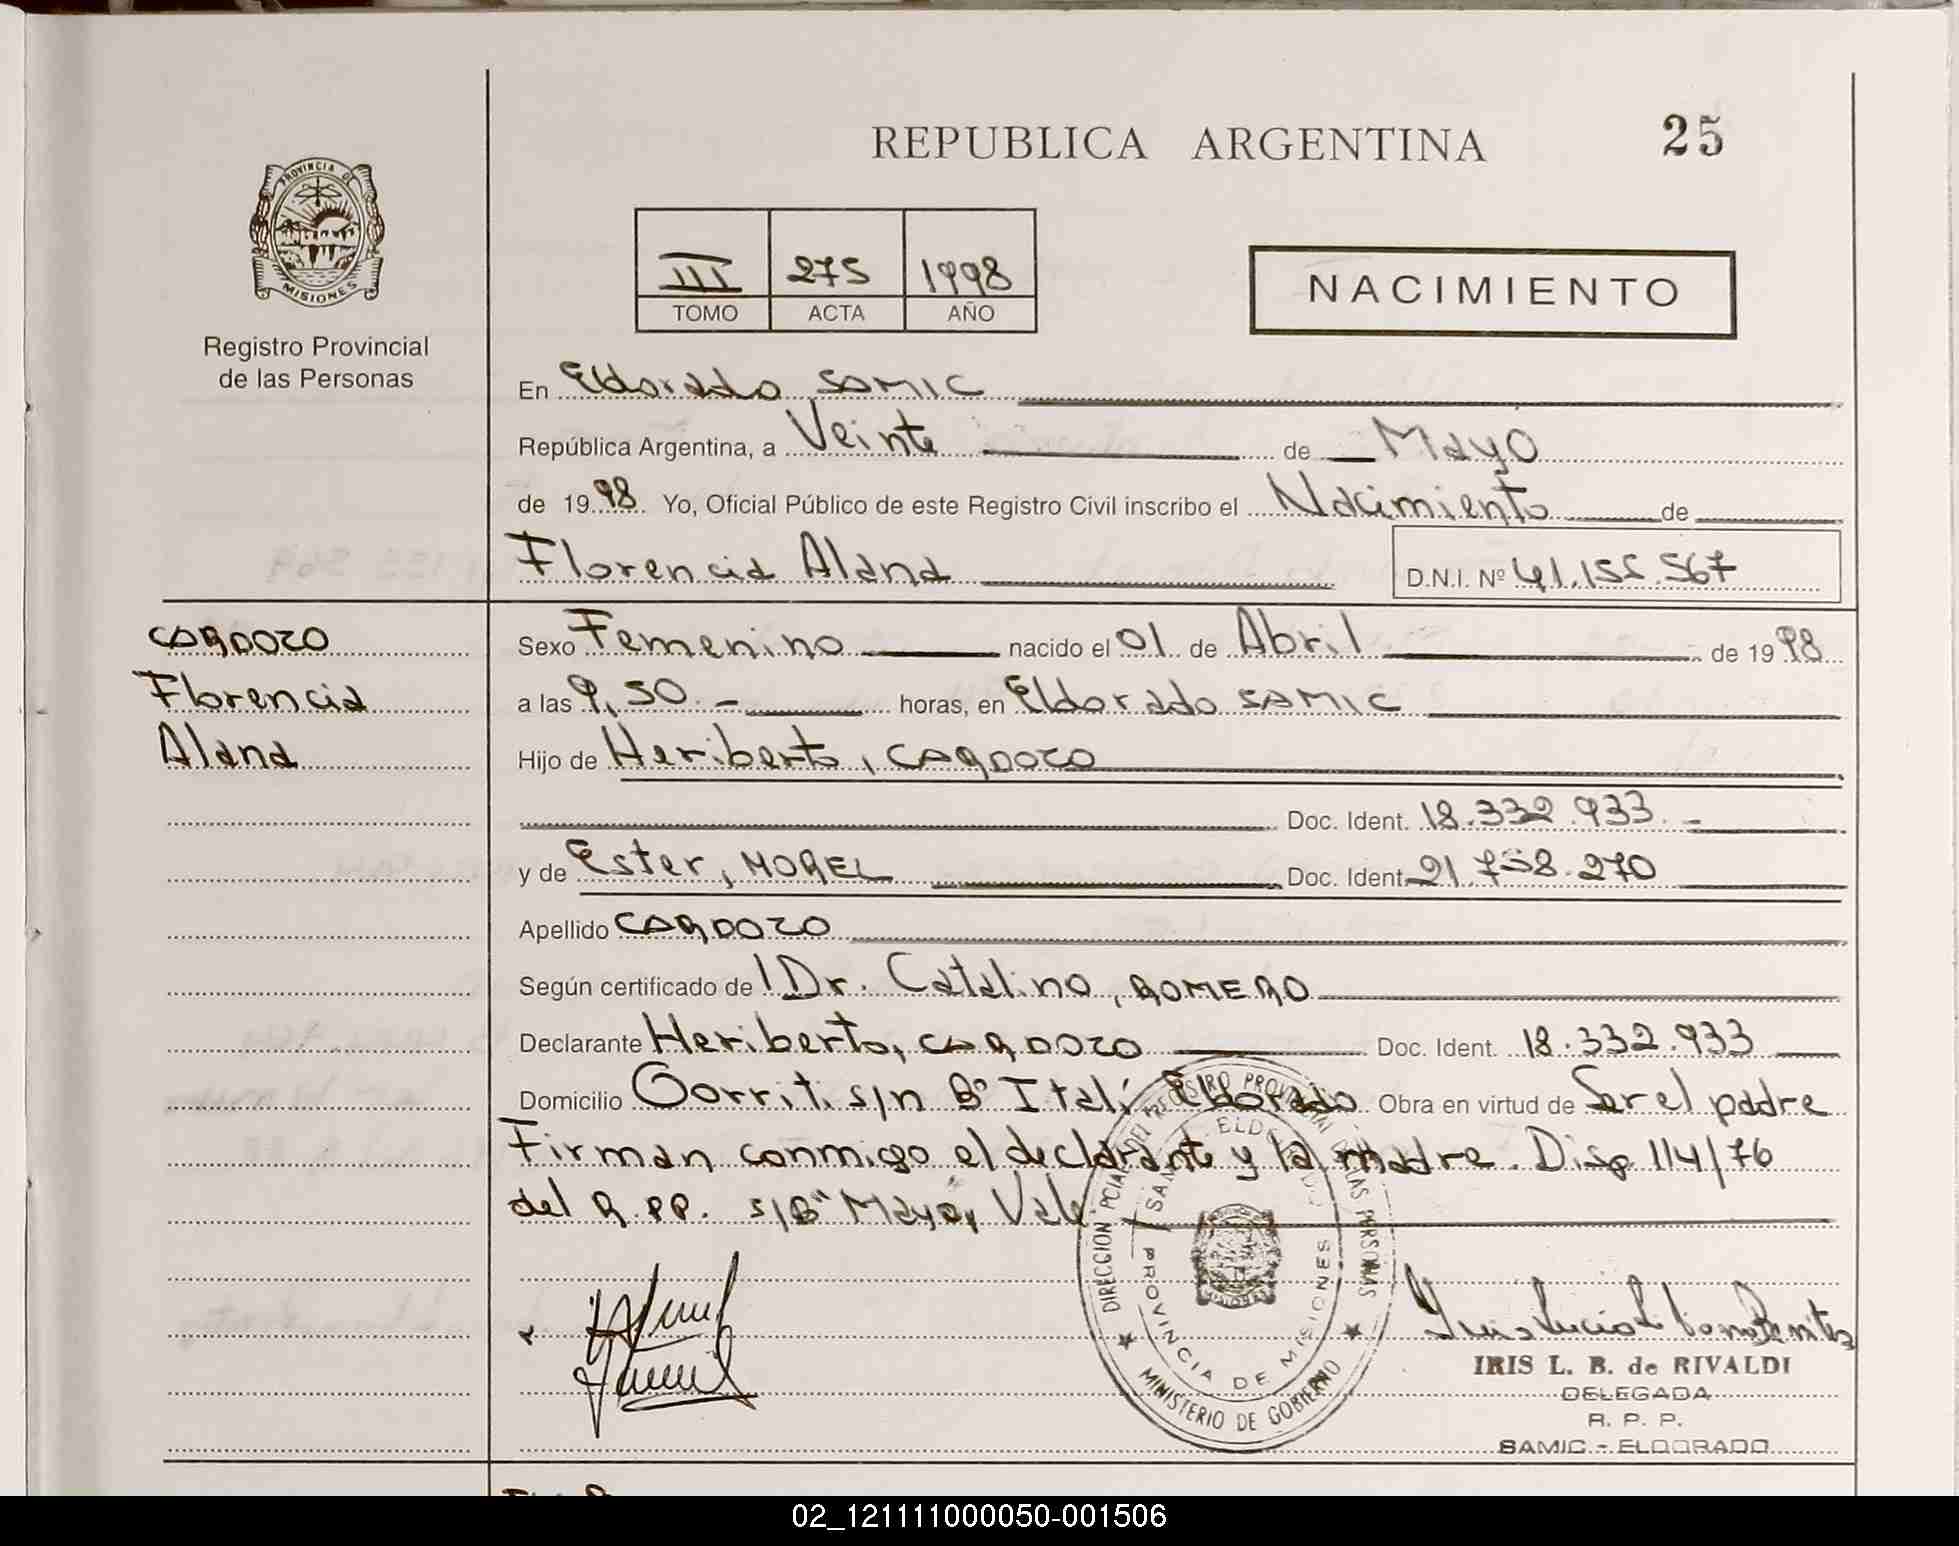 REPUBLICA ARGENTINA
25
PROVINCIA D
MISIONES
Registro Provincial
de las Personas
III 275 1998
TOMO ACTA AÑO
NACIMIENTO
En Eldorado SAMIC
República Argentina, a Veinte de Mayo
de 1998 Yo, Oficial Público de este Registro Civil inscribo el Nacimiento de
Florencia Alana D.N.I. Nº 41.155.567
CARDOZO
Florencia
Alana
Sexo Femenino nacido el 01 de Abril de 1998
a las 9,50.- horas, en Eldorado SAMIC
Hijo de Heriberto, CARDOZO
Doc. Ident. 18.332.933.-
y de Ester, MOREL Doc. Ident. 21.738.270
Apellido CARDOZO
Según certificado de Dr. Catalino, ROMERO
Declarante Heriberto, CARDOZO Doc. Ident. 18.332.933
Domicilio Gorriti s/n Bº Itatí Eldorado Obra en virtud de Ser el padre
Firman conmigo el declarante y la madre. Disp 114/76
del R.PP. s/B "Mayo", Vale
DIRECCION PCIAL DEL REGISTRO PROVINCIAL DE LAS PERSONAS
MINISTERIO DE GOBIERNO
PROVINCIA DE MISIONES
IRIS L. B. de RIVALDI
DELEGADA
R. P. P.
SAMIC - ELDORADO
02_121111000050-001506